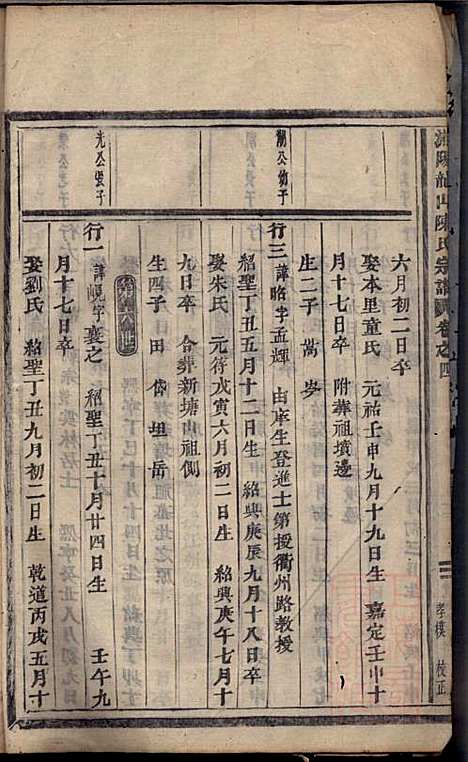 浦陽龍山陳氏宗譜 卷之四
孝樸 校正
六月初二日卒
娶本里童氏 元祐壬申九月十九日生 嘉定壬申十
月十七日卒 附葬祖墳邊
生二子 嵩 岁
瀾公幼子
行三 諱略字孟輝 由庠生登進士第授衢州路教授
紹聖丁丑五月十二日生 紹興庚辰九月十八日卒
娶朱氏 元符戊寅六月初二日生 紹興庚午七月十
九日卒 合葬新塘山祖側
生四子 田 岱 坦 岳
光公長子
行一 諱幌字襄之 紹聖丁丑十月廿四日生 壬午九
月十七日卒
娶劉氏 紹聖丁丑九月初二日生 乾道丙戌五月十